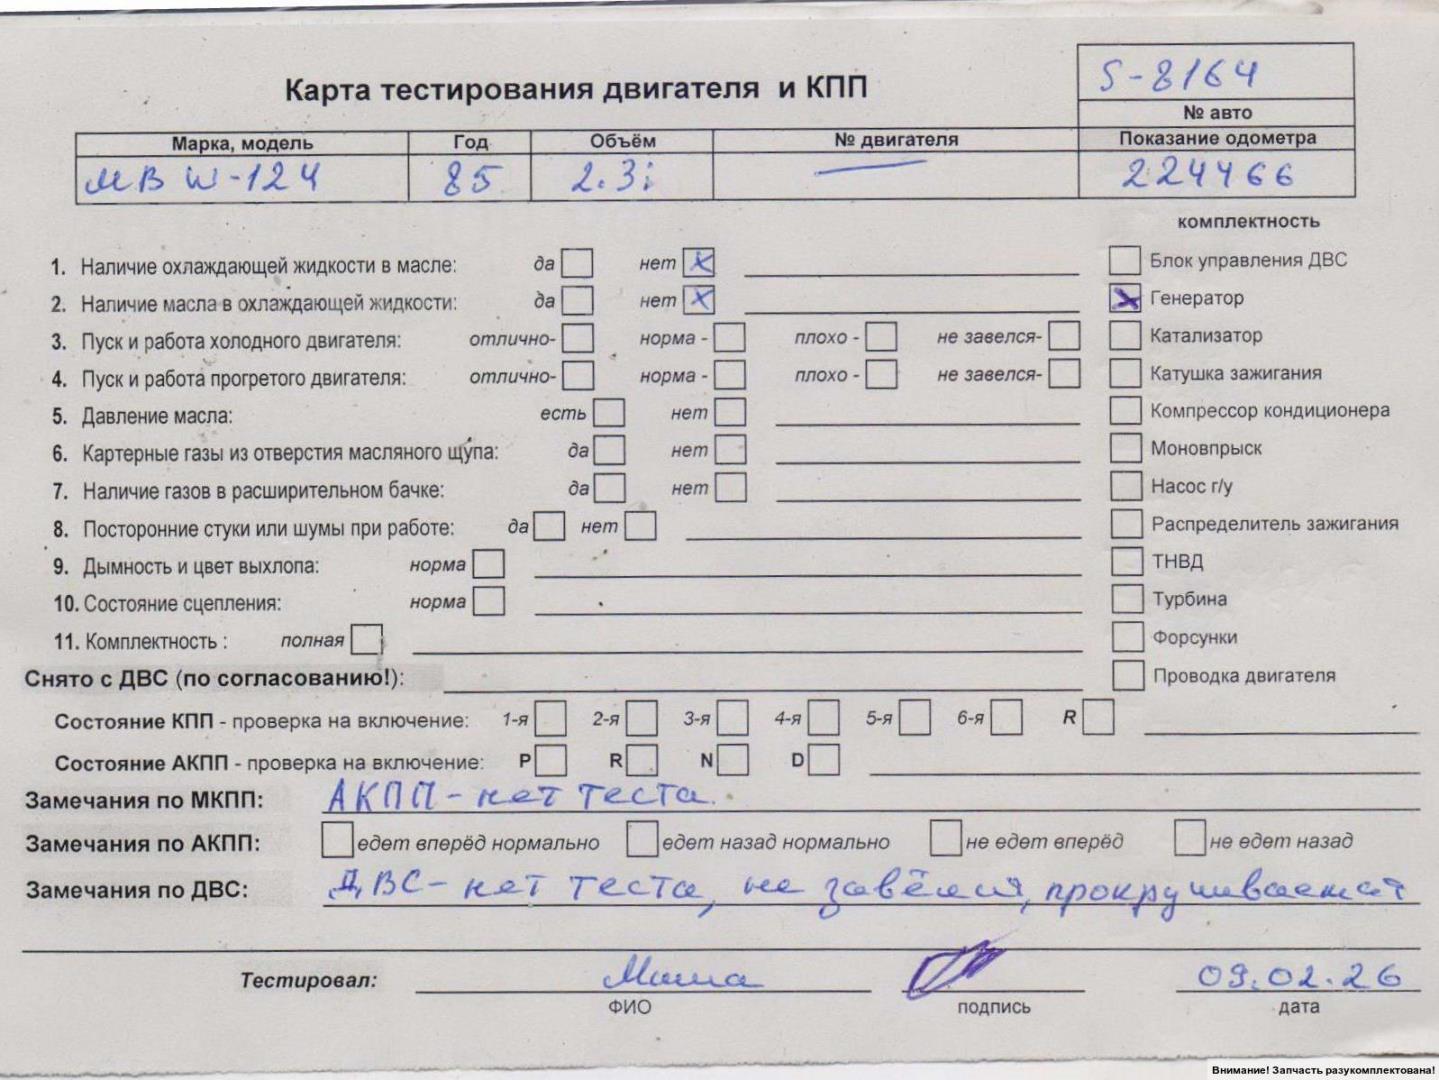 S-8164
Карта тестирования двигателя и КПП
№ авто
Марка, модель Год Объём № двигателя Показание одометра
МВ W-124 85 2.3i — 224466
комплектность
1. Наличие охлаждающей жидкости в масле: да нет x Блок управления ДВС
2. Наличие масла в охлаждающей жидкости: да нет x x Генератор
3. Пуск и работа холодного двигателя: отлично- норма - плохо - не завелся- Катализатор
4. Пуск и работа прогретого двигателя: отлично- норма - плохо - не завелся- Катушка зажигания
5. Давление масла: есть нет Компрессор кондиционера
6. Картерные газы из отверстия масляного щупа: да нет Моновпрыск
7. Наличие газов в расширительном бачке: да нет Насос г/у
8. Посторонние стуки или шумы при работе: да нет Распределитель зажигания
9. Дымность и цвет выхлопа: норма ТНВД
10. Состояние сцепления: норма Турбина
11. Комплектность : полная Форсунки
Снято с ДВС (по согласованию!): Проводка двигателя
Состояние КПП - проверка на включение: 1-я 2-я 3-я 4-я 5-я 6-я R
Состояние АКПП - проверка на включение: P R N D
Замечания по МКПП: АКПП - нет теста.
Замечания по АКПП: едет вперёд нормально едет назад нормально не едет вперёд не едет назад
Замечания по ДВС: ДВС - нет теста, не завёлся, прокручивается
Тестировал: Маша 09.02.26
ФИО подпись дата
Внимание! Запчасть разукомплектована!